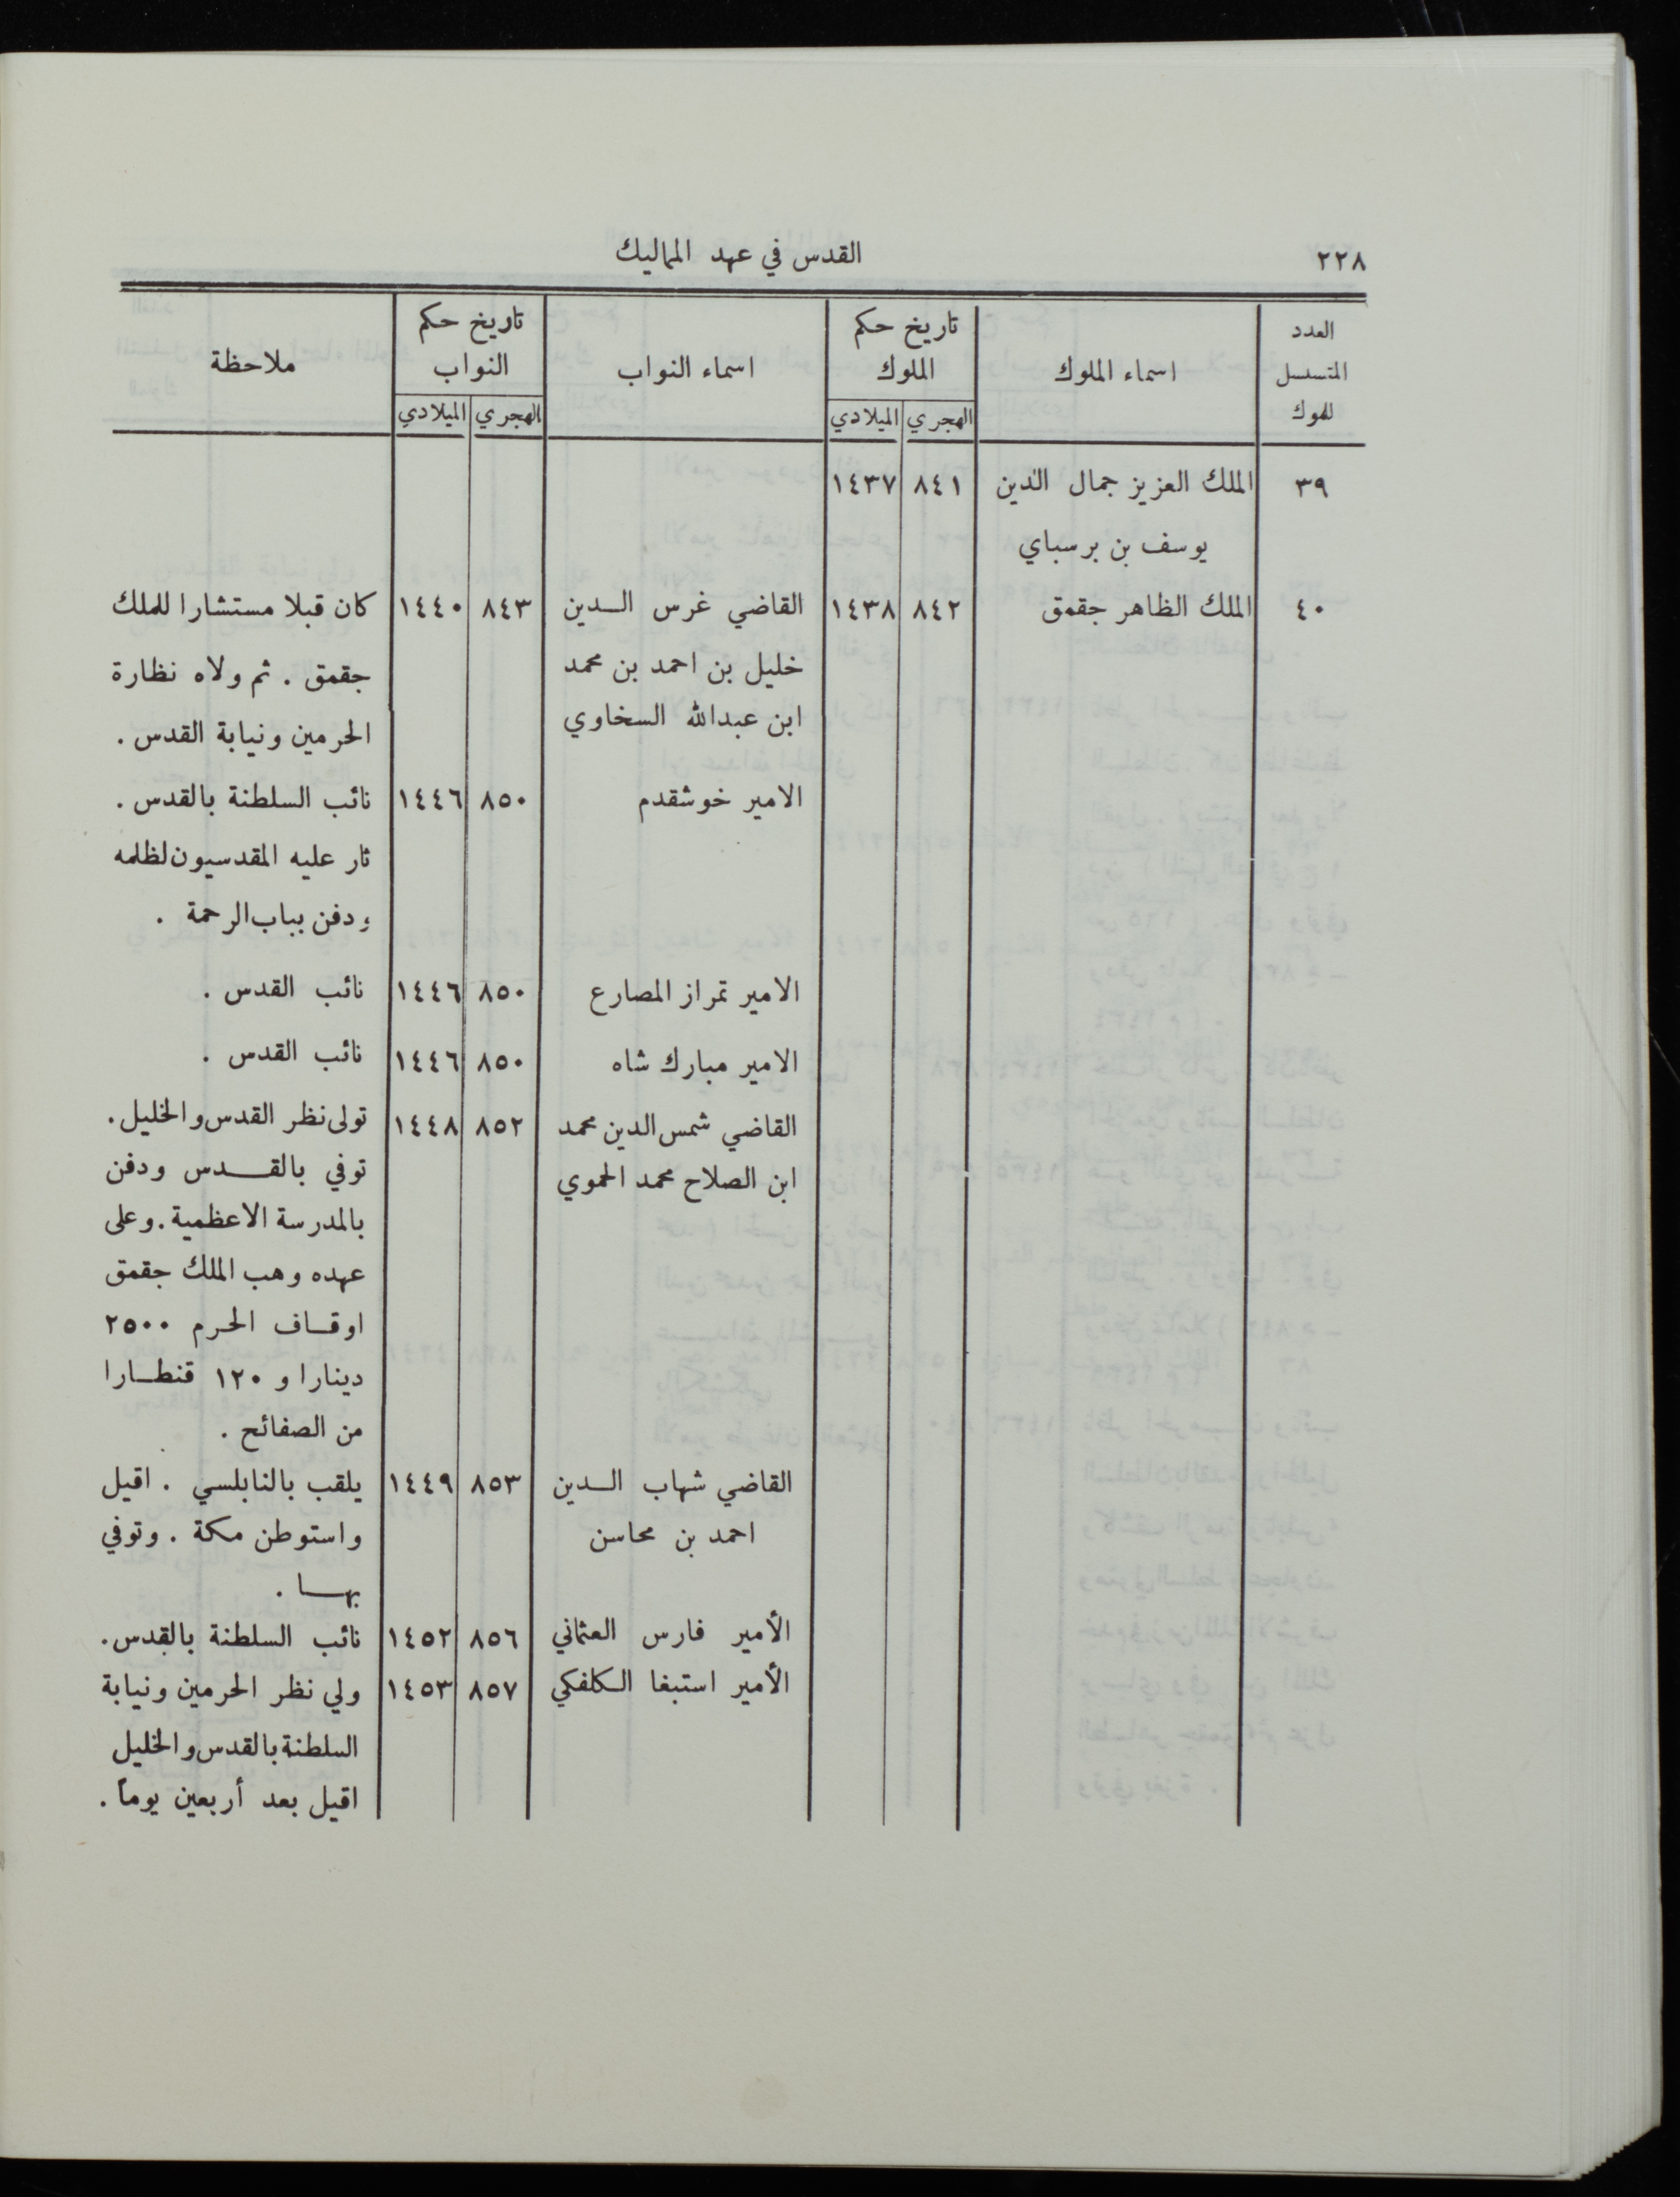 ٢٢٨ القدس في عهد المماليك
العدد المتسلسل للموك | اسماء الملوك | تاريخ حكم الملوك | اسماء النواب | تاريخ حكم النواب | ملاحظة
الهجري | الميلادي | الهجري | الميلادي
٣٩ | الملك العزيز جمال الدين | ٨٤١ | ١٤٣٧
يوسف بن برسباي
٤٠ | الملك الظاهر جقمق | ٨٤٢ | ١٤٣٨ | القاضي غرس الدين | ٨٤٣ | ١٤٤٠ | كان قبلا مستشارا للملك
خليل بن احمد بن محمد | جقمق . ثم ولاه نظارة
ابن عبدالله السخاوي | الحرمين ونيابة القدس .
الامير خوشقدم | ٨٥٠ | ١٤٤٦ | نائب السلطنة بالقدس .
ثار عليه المقدسيون لظلمه
ودفن بباب الرحمة .
الامير تمراز المصارع | ٨٥٠ | ١٤٤٦ | نائب القدس .
الامير مبارك شاه | ٨٥٠ | ١٤٤٦ | نائب القدس .
القاضي شمس الدين محمد | ٨٥٢ | ١٤٤٨ | تولى نظر القدس والخليل .
ابن الصلاح محمد الحموي | توفي بالقدس ودفن
بالمدرسة الاعظمية . وعلى
عهده وهب الملك جقمق
اوقاف الحرم ٢٥٠٠
دينارا و ١٢٠ قنطارا
من الصفائح .
القاضي شهاب الدين | ٨٥٣ | ١٤٤٩ | يلقب بالنابلسي . اقيل
احمد بن محاسن | واستوطن مكة . وتوفي
بها .
الأمير فارس العثماني | ٨٥٦ | ١٤٥٢ | نائب السلطنة بالقدس .
الأمير استبغا الكلفكي | ٨٥٧ | ١٤٥٣ | ولي نظر الحرمين ونيابة
السلطنة بالقدس والخليل
اقيل بعد أربعين يوماً .